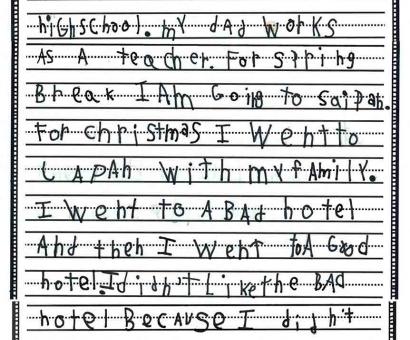 highschool. my dad works
As A teacher. For spring
Break I Am Going to saipan.
For christmas I Went to
Japan with my family.
I went to A BAd hotel
And then I went to A Good
hotel. I didn't Like the BAd
hotel BecAuse I didn't